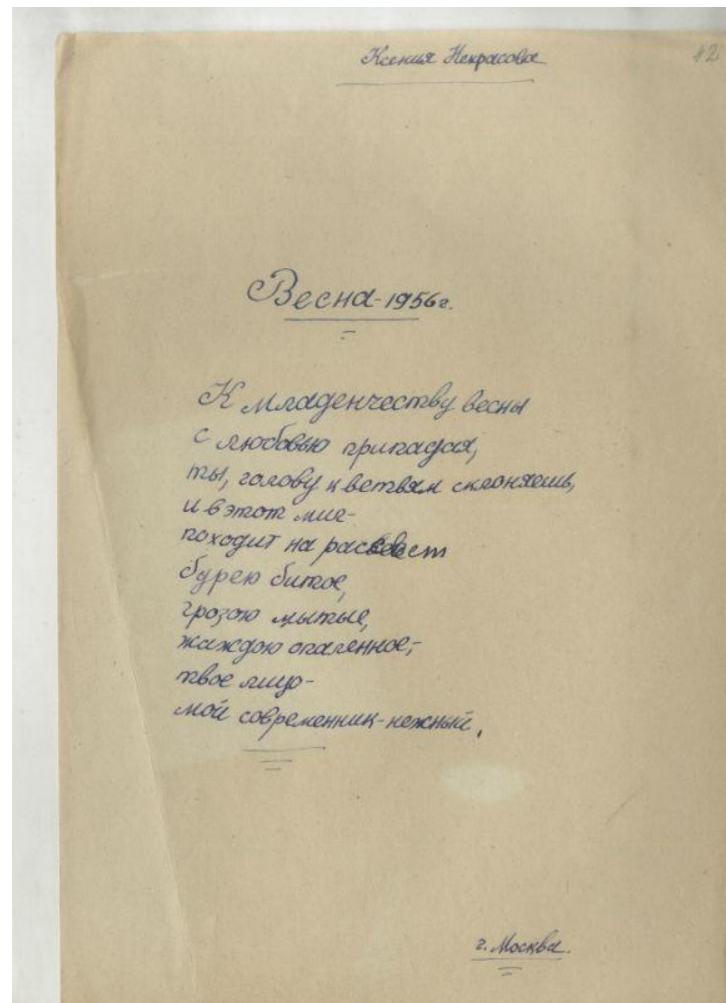 Ксения Некрасова
42
Весна-1956г.
К младенчеству весны
с любовью припадая,
ты, голову к ветвям склоняешь,
и в этот миг-
походит на рассвет
бурею битое,
грозою мытые,
жаждою опаленное,-
твое лицо-
мой современник-нежный.
г. Москва.